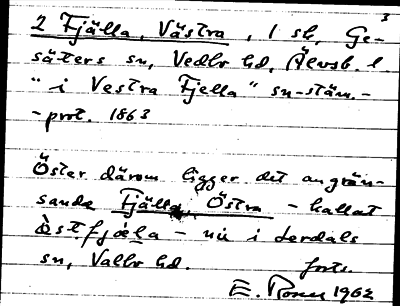 3
2 Fjälla, Västra, 1 sk, Ge-
säters sn, Vedbo hd, Älvsb. l
" i Vestra Fjella " sn-stäm.-
- prot. 1863
Öster därom ligger det angrän-
sande Fjälla, Östra - kallat
östfjæla - nu i Lerdals
sn, Valbo hd. forts.
E. 1962